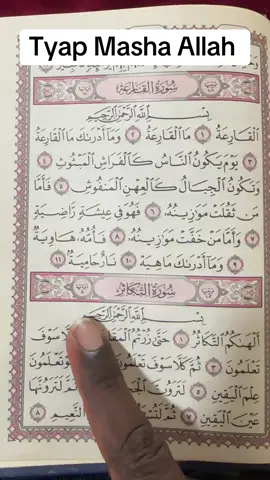 Tyap Masha Allah
سُورَةُ القَارِعَةِ
بِسْمِ اللَّهِ الرَّحْمَٰنِ الرَّحِيمِ
الْقَارِعَةُ ١ مَا الْقَارِعَةُ ٢ وَمَا أَدْرَاكَ مَا الْقَارِعَةُ
٣ يَوْمَ يَكُونُ النَّاسُ كَالْفَرَاشِ الْمَبْثُوثِ ٤
وَتَكُونُ الْجِبَالُ كَالْعِهْنِ الْمَنفُوشِ ٥ فَأَمَّا
مَن ثَقُلَتْ مَوَازِينُهُ ٦ فَهُوَ فِي عِيشَةٍ رَّاضِيَةٍ
٧ وَأَمَّا مَنْ خَفَّتْ مَوَازِينُهُ ٨ فَأُمُّهُ هَاوِيَةٌ
٩ وَمَا أَدْرَاكَ مَا هِيَهْ ١٠ نَارٌ حَامِيَةٌ ١١
سُورَةُ التَّكَاثُرِ
بِسْمِ اللَّهِ الرَّحْمَٰنِ الرَّحِيمِ
أَلْهَاكُمُ التَّكَاثُرُ ١ حَتَّىٰ زُرْتُمُ سَوْفَ
تَعْلَمُونَ ٣ ثُمَّ كَلَّا سَوْفَ تَعْلَمُونَ
عِلْمَ الْيَقِينِ ٥ لَتَرَوُنَّ ثُمَّ لَتَرَوُنَّهَا
عَيْنَ الْيَقِينِ ٧ ثُمَّ النَّعِيمِ ٨